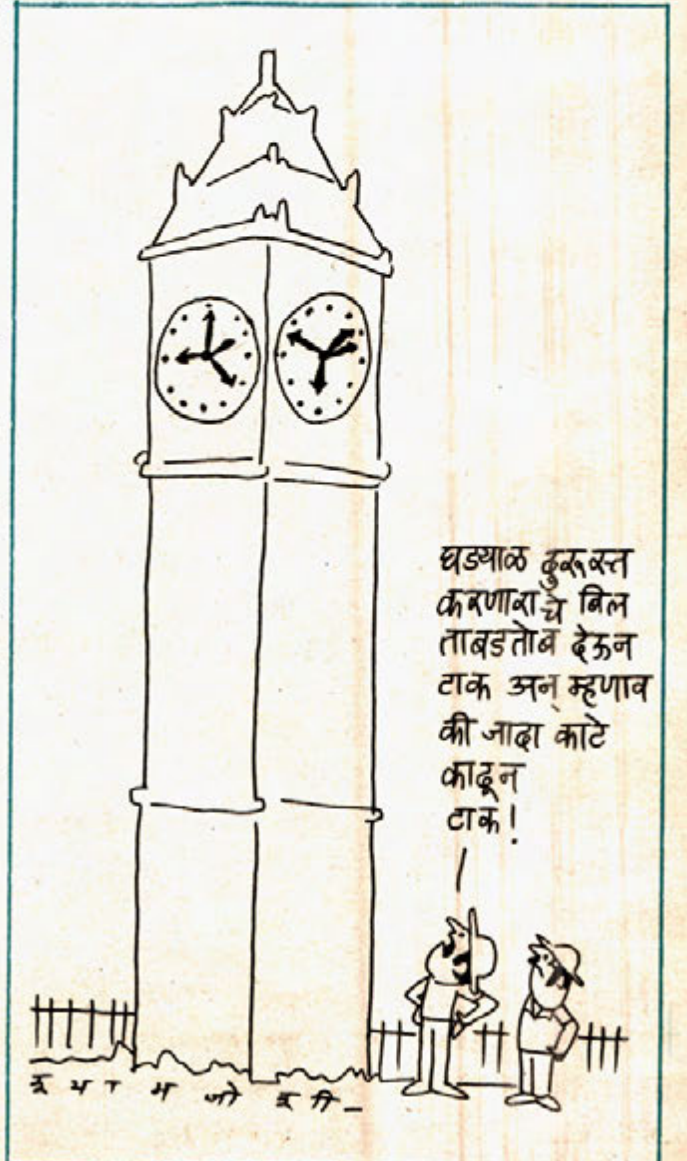 घड्याळ दुरूस्त
करणाराचे बिल
ताबडतोब देऊन
टाक अन् म्हणाव
की जादा काटे
काढून
टाक!